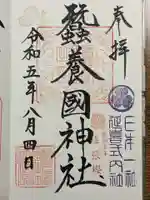 奉拝
日本一社
延喜式内社
蠶養國神社
令和五年八月四日